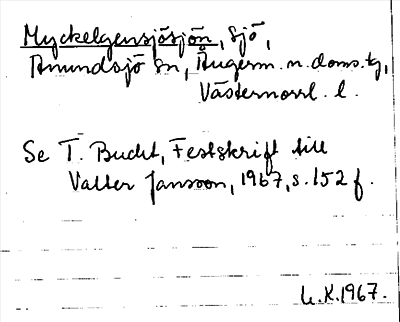 Myckelgensjösjön, sjö,
Anundsjö sn, Ångerm. n. doms. tg,
Västernorrl. l.
Se T. Bucht, Festskrift till
Valter Jansson, 1967, s. 152 f.
L.K. 1967.